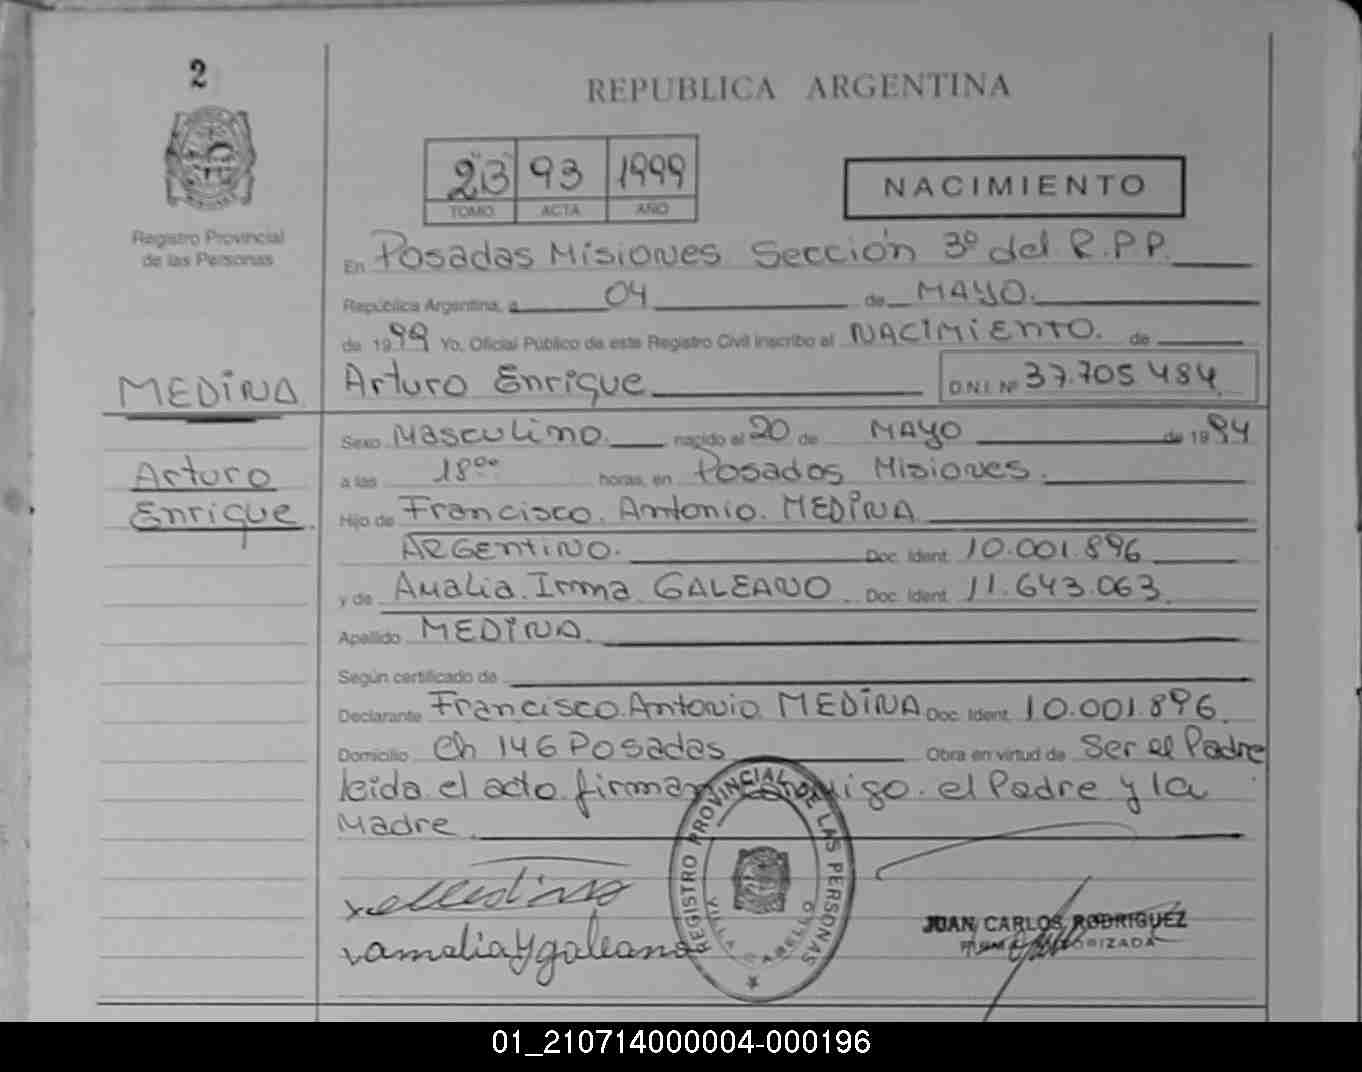 2
REPUBLICA ARGENTINA
Registro Provincial
de las Personas
2B 93 1999
TOMO ACTA AÑO
NACIMIENTO
En Posadas Misiones Sección 3º del R.P.P.
República Argentina, a 04 de MAYO.
de 1999 Yo, Oficial Público de este Registro Civil inscribo el NACIMIENTO. de
MEDINA
Arturo Enrique D.N.I. Nº 37.705.484
Sexo Masculino. nacido el 20 de MAYO de 1994
Arturo
Enrique
a las 18ºº horas, en Posadas Misiones.
Hijo de Francisco. Antonio. MEDINA
ARGENTINO. Doc. Ident. 10.001.896
y de Amalia. Irma GALEANO Doc. Ident. 11.643.063
Apellido MEDINA
Según certificado de
Declarante Francisco. Antonio MEDINA Doc. Ident. 10.001.896
Domicilio Ch 146 Posadas Obra en virtud de Ser el Padre
leida el acto firman conmigo. el Padre y la
Madre
REGISTRO PROVINCIAL DE LAS PERSONAS
VILLA CABELLO
Medina
amalia y galeano
JUAN CARLOS RODRIGUEZ
FIRMA AUTORIZADA
01_210714000004-000196